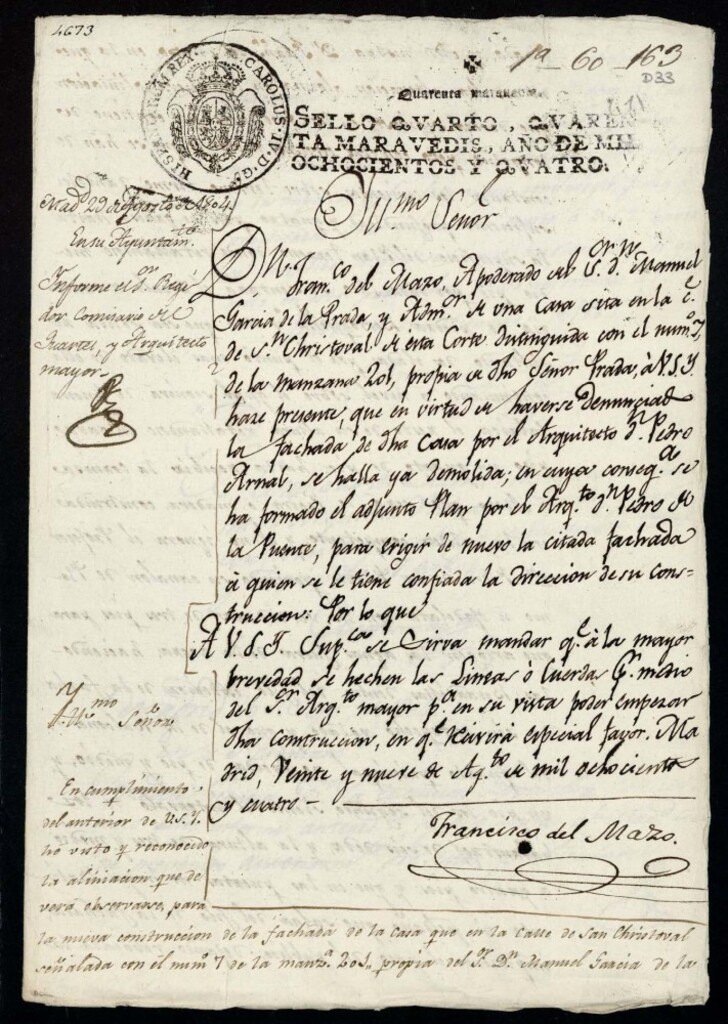 4673
1ª 60 163
D33
HISPANIARUM REX. CAROLUS. IV. D. G.
Quarenta maravedis.
SELLO QVARTO, QVAREN
TA MARAVEDIS, AÑO DE MIL
OCHOCIENTOS Y QVATRO.
Madᵈ 29 de Agosto de 1804
En su Ayuntamᵗᵒ
Informe el Sᵒʳ Regi
dor Comisario del
Quartel, y Arquitecto
mayor
Illᵐᵒ Señor
Dⁿ Franᶜᵒ del Mazo, Apoderado del Sᵒʳ dⁿ Manuel
Garcia de la Prada, y Admᵒʳ de una Casa sita en la cᵉ
de Sⁿ Christoval de esta Corte distinguida con el numᵒ 7,
de la manzana 201, propia de dho Señor Prada, à V.S.Y.
haze presente, que en virtud de haverse Denunciado
la fachada de dha Casa por el Arquitecto dⁿ Pedro
Arnal, se halla ya demolida; en cuya conseqᵃ se
ha formado el adjunto Plan por el Arqᵗᵒ dⁿ Pedro de
la Puente, para erigir de nuevo la citada fachada
à quien se le tiene confiada la direccion de su cons=
truccion: Por lo que
A V.S.I. Supᶜᵃ se sirva mandar qᵉ à la mayor
brevedad se hechen las Lineas ò Cuerdas pʳ medio
del Sᵒʳ Arqᵗᵒ mayor pᵃ en su vista poder empezar
dha construccion, en qᵉ recivirà especial favor. Ma
drid, Veinte y nueve de Agᵗᵒ de mil ochocientos
y cuatro
Francisco del Mazo.
Yllᵐᵒ Señor
En cumplimiento
del anterior de V.S.Y.
he visto y reconocido
la aliniacion que de
verá observarse, para
la nueva construccion de la fachada de la Casa que en la Calle de San Christoval
señalada con el numᵒ 7 de la manzᵃ 201, propia del Sᵒʳ Dⁿ Manuel Garcia de la